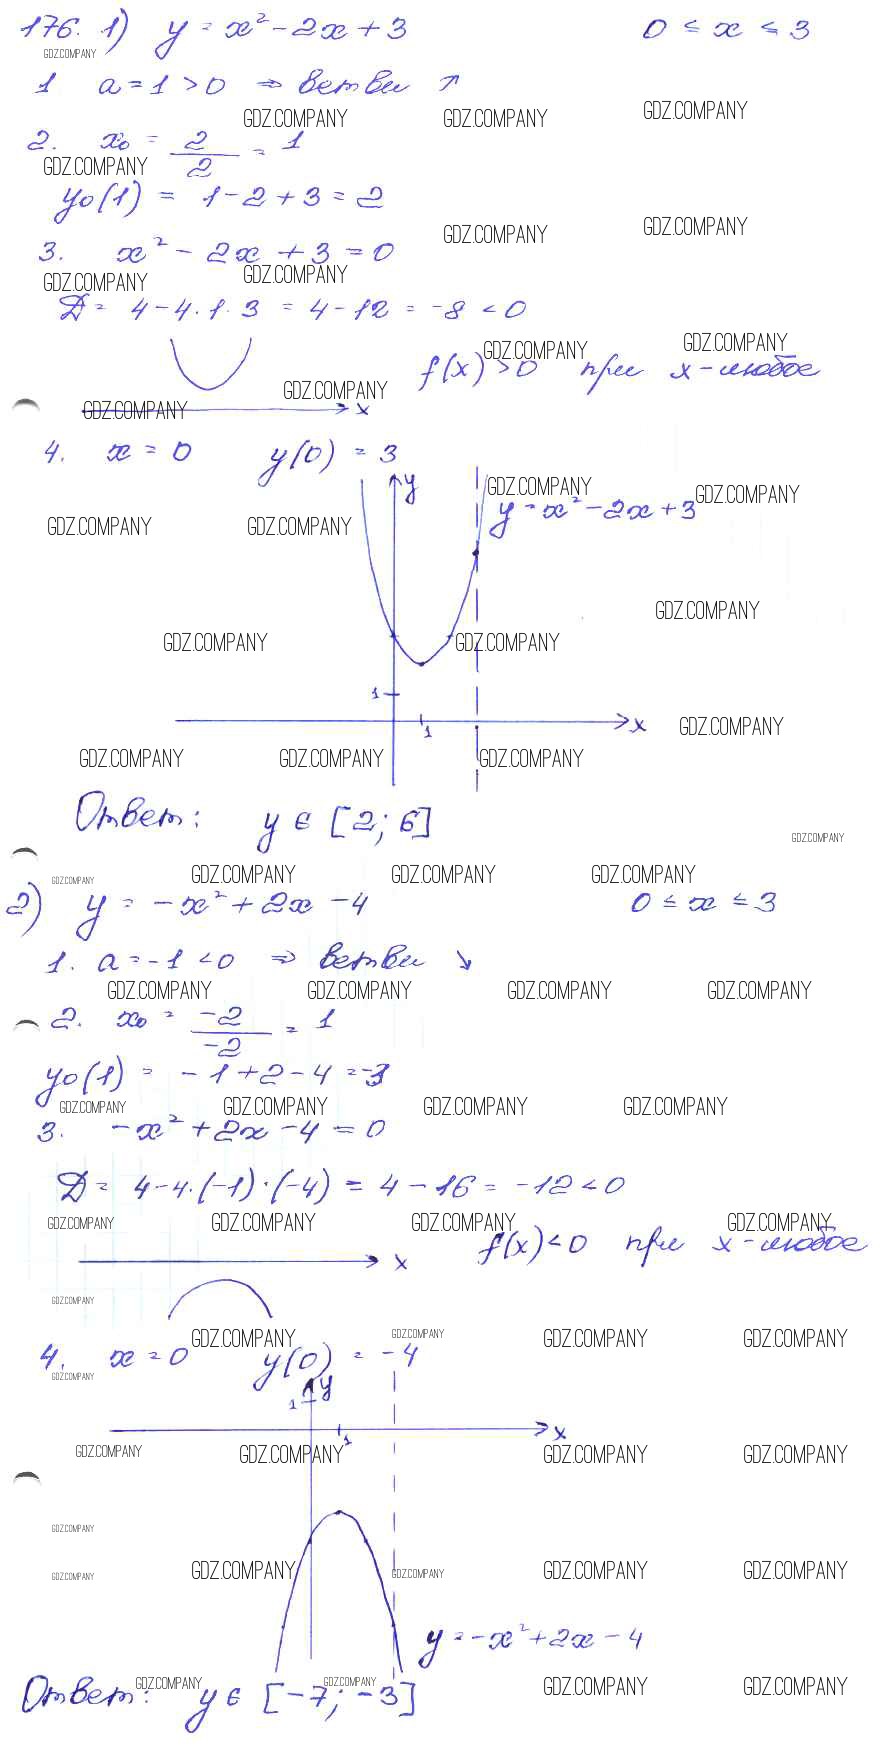 176. 1) y = x² - 2x + 3 0 ≤ x ≤ 3
GDZ.COMPANY
1 a = 1 > 0 ⇒ ветви ↗
GDZ.COMPANY GDZ.COMPANY GDZ.COMPANY
2. x₀ = 2/2 = 1
GDZ.COMPANY
y₀(1) = 1 - 2 + 3 = 2
GDZ.COMPANY GDZ.COMPANY
3. x² - 2x + 3 = 0
GDZ.COMPANY GDZ.COMPANY
D = 4 - 4·1·3 = 4 - 12 = -8 < 0
GDZ.COMPANY GDZ.COMPANY
f(x) > 0 при x - любое
GDZ.COMPANY
GDZ.COMPANY x
4. x = 0 y(0) = 3
y GDZ.COMPANY GDZ.COMPANY
y = x² - 2x + 3
GDZ.COMPANY GDZ.COMPANY
GDZ.COMPANY
GDZ.COMPANY GDZ.COMPANY
1
1 x GDZ.COMPANY
GDZ.COMPANY GDZ.COMPANY GDZ.COMPANY
Ответ: y ∈ [2; 6]
GDZ.COMPANY
GDZ.COMPANY GDZ.COMPANY GDZ.COMPANY GDZ.COMPANY
2) y = -x² + 2x - 4 0 ≤ x ≤ 3
1. a = -1 < 0 ⇒ ветви ↘
GDZ.COMPANY GDZ.COMPANY GDZ.COMPANY GDZ.COMPANY
2. x₀ = -2/-2 = 1
y₀(1) = -1 + 2 - 4 = -3
GDZ.COMPANY GDZ.COMPANY GDZ.COMPANY GDZ.COMPANY
3. -x² + 2x - 4 = 0
D = 4 - 4·(-1)·(-4) = 4 - 16 = -12 < 0
GDZ.COMPANY GDZ.COMPANY GDZ.COMPANY GDZ.COMPANY
f(x) < 0 при x - любое
x
GDZ.COMPANY
GDZ.COMPANY GDZ.COMPANY GDZ.COMPANY GDZ.COMPANY
4. x = 0 y(0) = -4
GDZ.COMPANY
y
1
1 x
GDZ.COMPANY GDZ.COMPANY GDZ.COMPANY GDZ.COMPANY
GDZ.COMPANY
GDZ.COMPANY GDZ.COMPANY GDZ.COMPANY GDZ.COMPANY GDZ.COMPANY
y = -x² + 2x - 4
GDZ.COMPANY GDZ.COMPANY GDZ.COMPANY GDZ.COMPANY
Ответ: y ∈ [-7; -3]